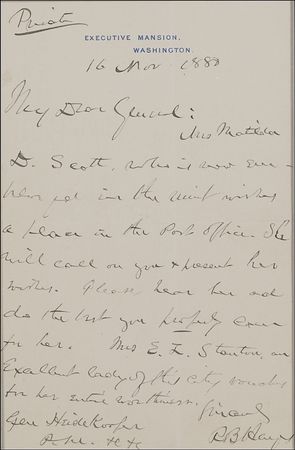 Private
EXECUTIVE MANSION,
WASHINGTON.
16 Nov. 1880
My Dear General:
Mrs Matilda
D. Scott, who is now em-
ployed in the mint wishes
a place in the Post Office. She
will call on you & present her
wishes. Please hear her and
do the best you properly can
for her. Mrs E. L. Stanton, an
Excellent lady of this city vouches
for her entire worthiness.
Sincerely
Gen Heidekoper
R B Hayes